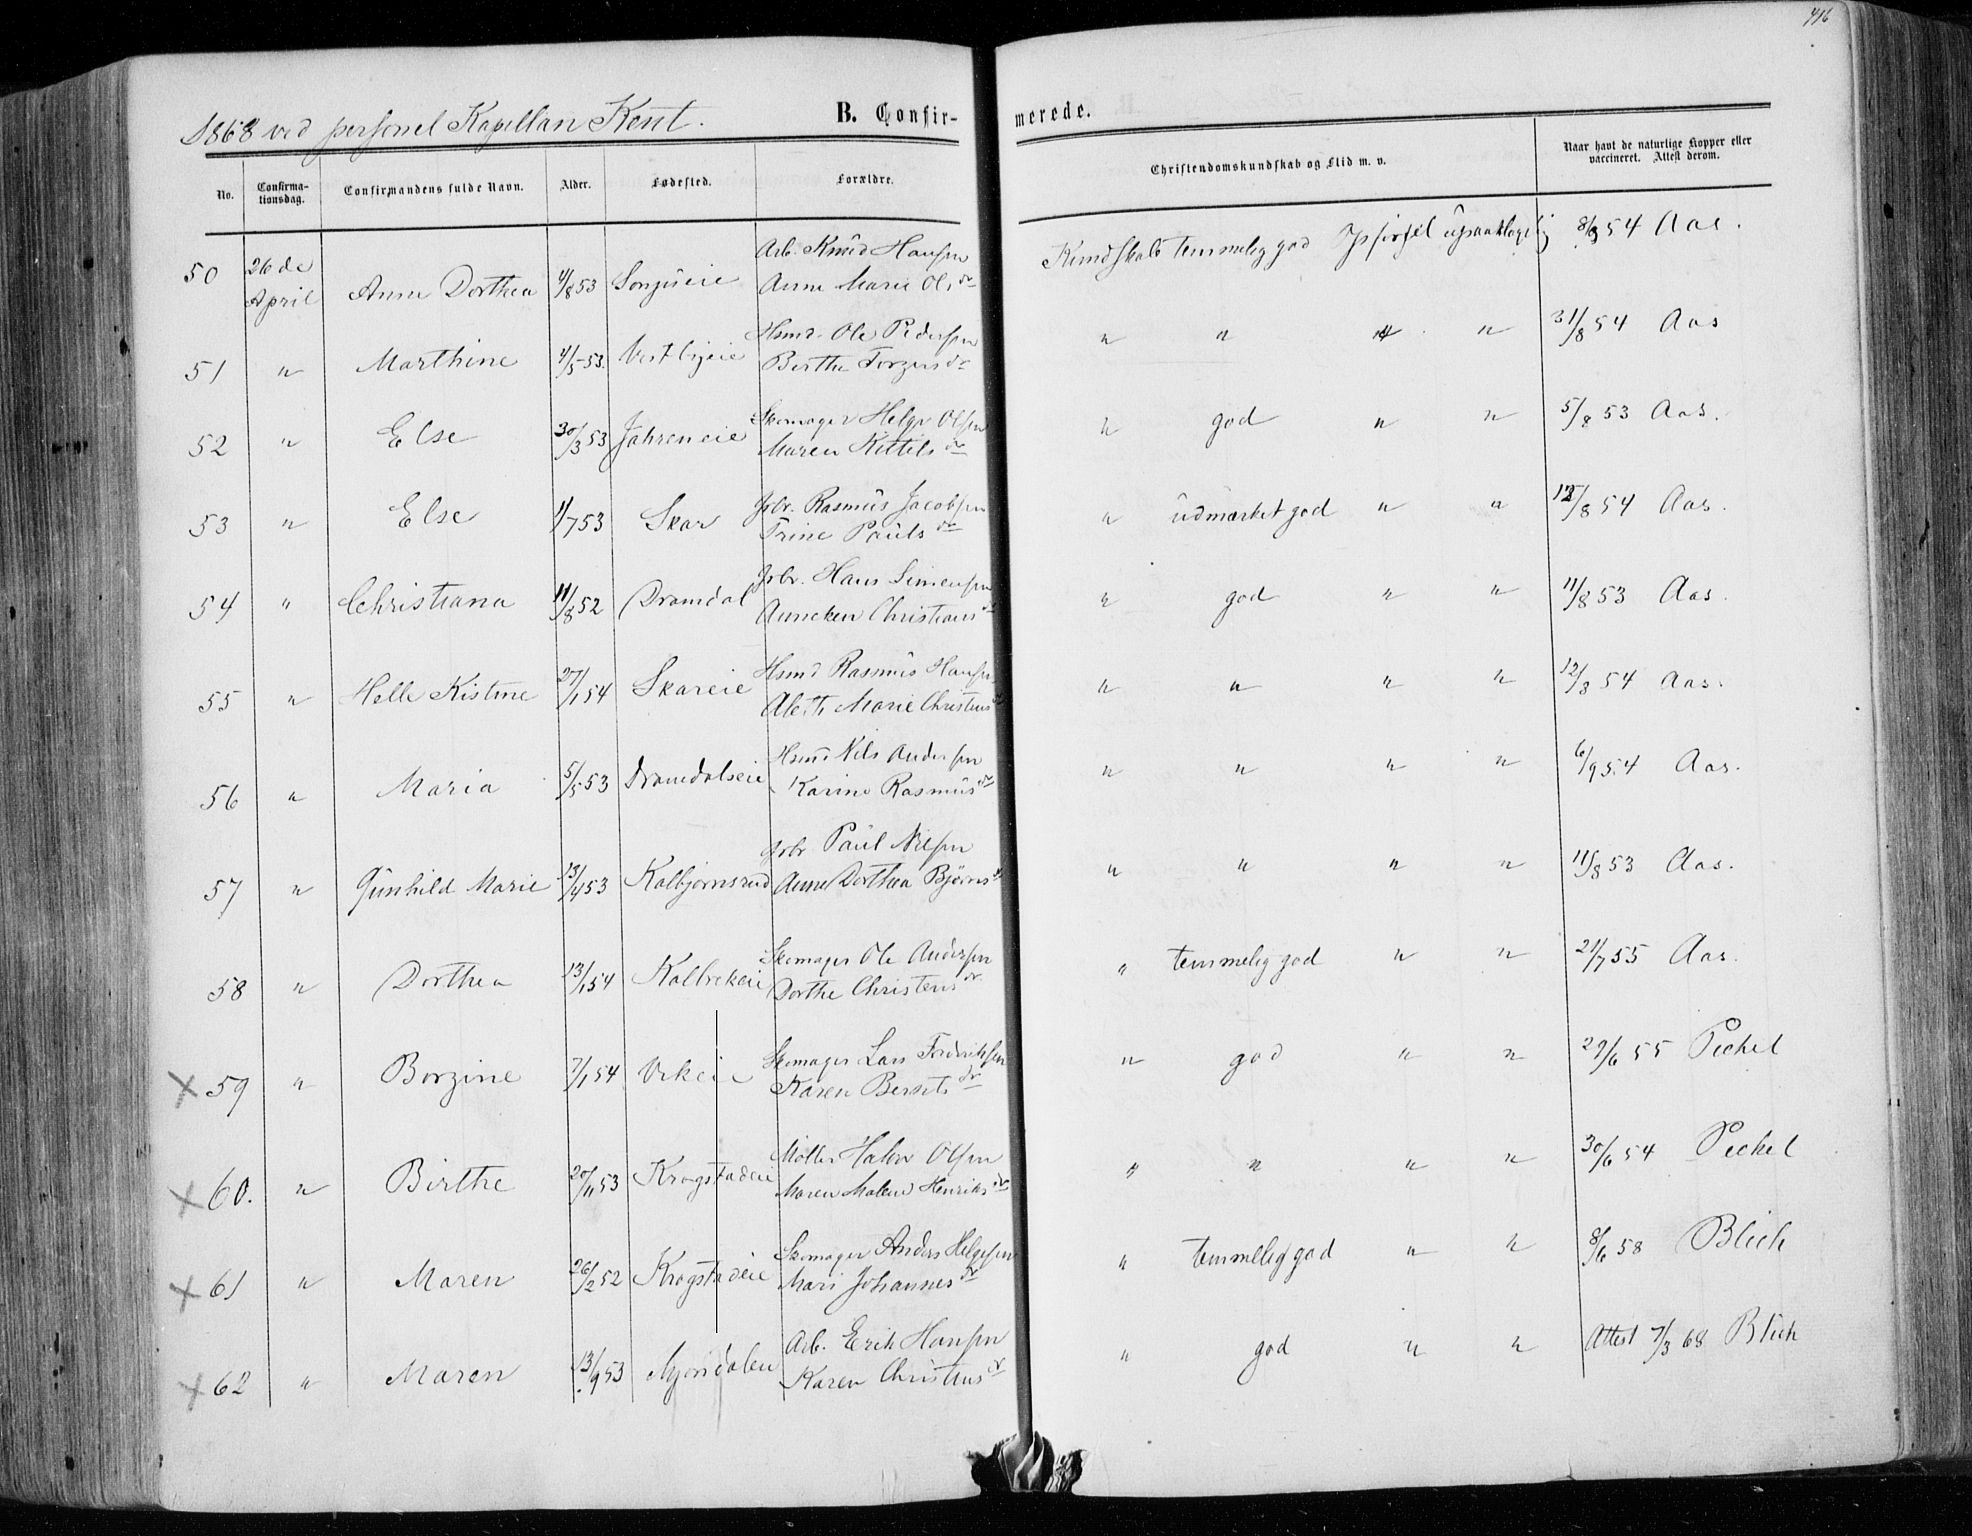 416
1868 ved personel Kapellan Kent.
B. Confir-
merede.
No.
Confirma-
tionsdag.
Confirmandens fulde Navn.
Alder.
Fødested.
Forældre.
Christendomskundskab og Flid m. v.
Naar havt de naturlige Kopper eller
vaccineret. Attest derom.
Arb. Knud Hansen
50 26de April Anne Dorthea 4/8 53 Anne Marie Ols dr Kundskab temmelig god 54 Aas.
Hsmd. Ole Pedersen
51 " Marthine 4/5 53. Vestbyeie Berthe " " " " 31/8 54 Aas
Skomager Helge Olsen
52 " Else 30/3 53 Jahreneie Maren Kittels dr " god " " 5/8 53 Aas.
Gbr. Rasmus Jacobsen
53 " Else 1/7 53 Skar Trine Pauls dr " udmærket god " " /8 54 Aas.
Gbr. Hans Simensen
54 " Christiana 11/8 52 Dramdal Anneken Christians dr " god " " 11/8 53 Aas.
Hsmd Rasmus Hansen
55 " Helle Kistine 27/1 54 Skareie Marie Christens dr " " " " 12/8 54 Aas.
Hsmd Nils Andersen
56 " Maria 5/5 53 Dramdalseie Karine Rasmus dr " " " " 6/9 54 Aas.
Gbr Paul Nilsen
57 " Gunhild Marie 13/4 53 Kolbjørnsrud Anne Dorthea Bjørns dr " " " " 11/8 53 Aas.
Skomager Ole Andersen
58 " Dorthea 13/1 54 Kolbrekeie Dorthe Christens dr " temmelig god " " 21/7 55 Aas.
Skomager Lars Fredriksen
x 59 " Borgine 7/1 54 Karen Bernts dr " god " " 29/6 55 Pechel
Møller Halvor Olsen
x 60. " Birthe 20/11 53 Krogstadeie Maren Malene Henriks dr " " " " 30/6 54 Pechel
Skomager Anders Helgesen
x 61 " Maren 26/2 52 Krogstadeie Mari Johannes dr " temmelig god " " 8/6 58 Blich
Arb. Erik Hansen
x 62 " Maren 13/9 53 Mjøndalen Karen Christens dr " god " " Attest 7/3 68 Blich